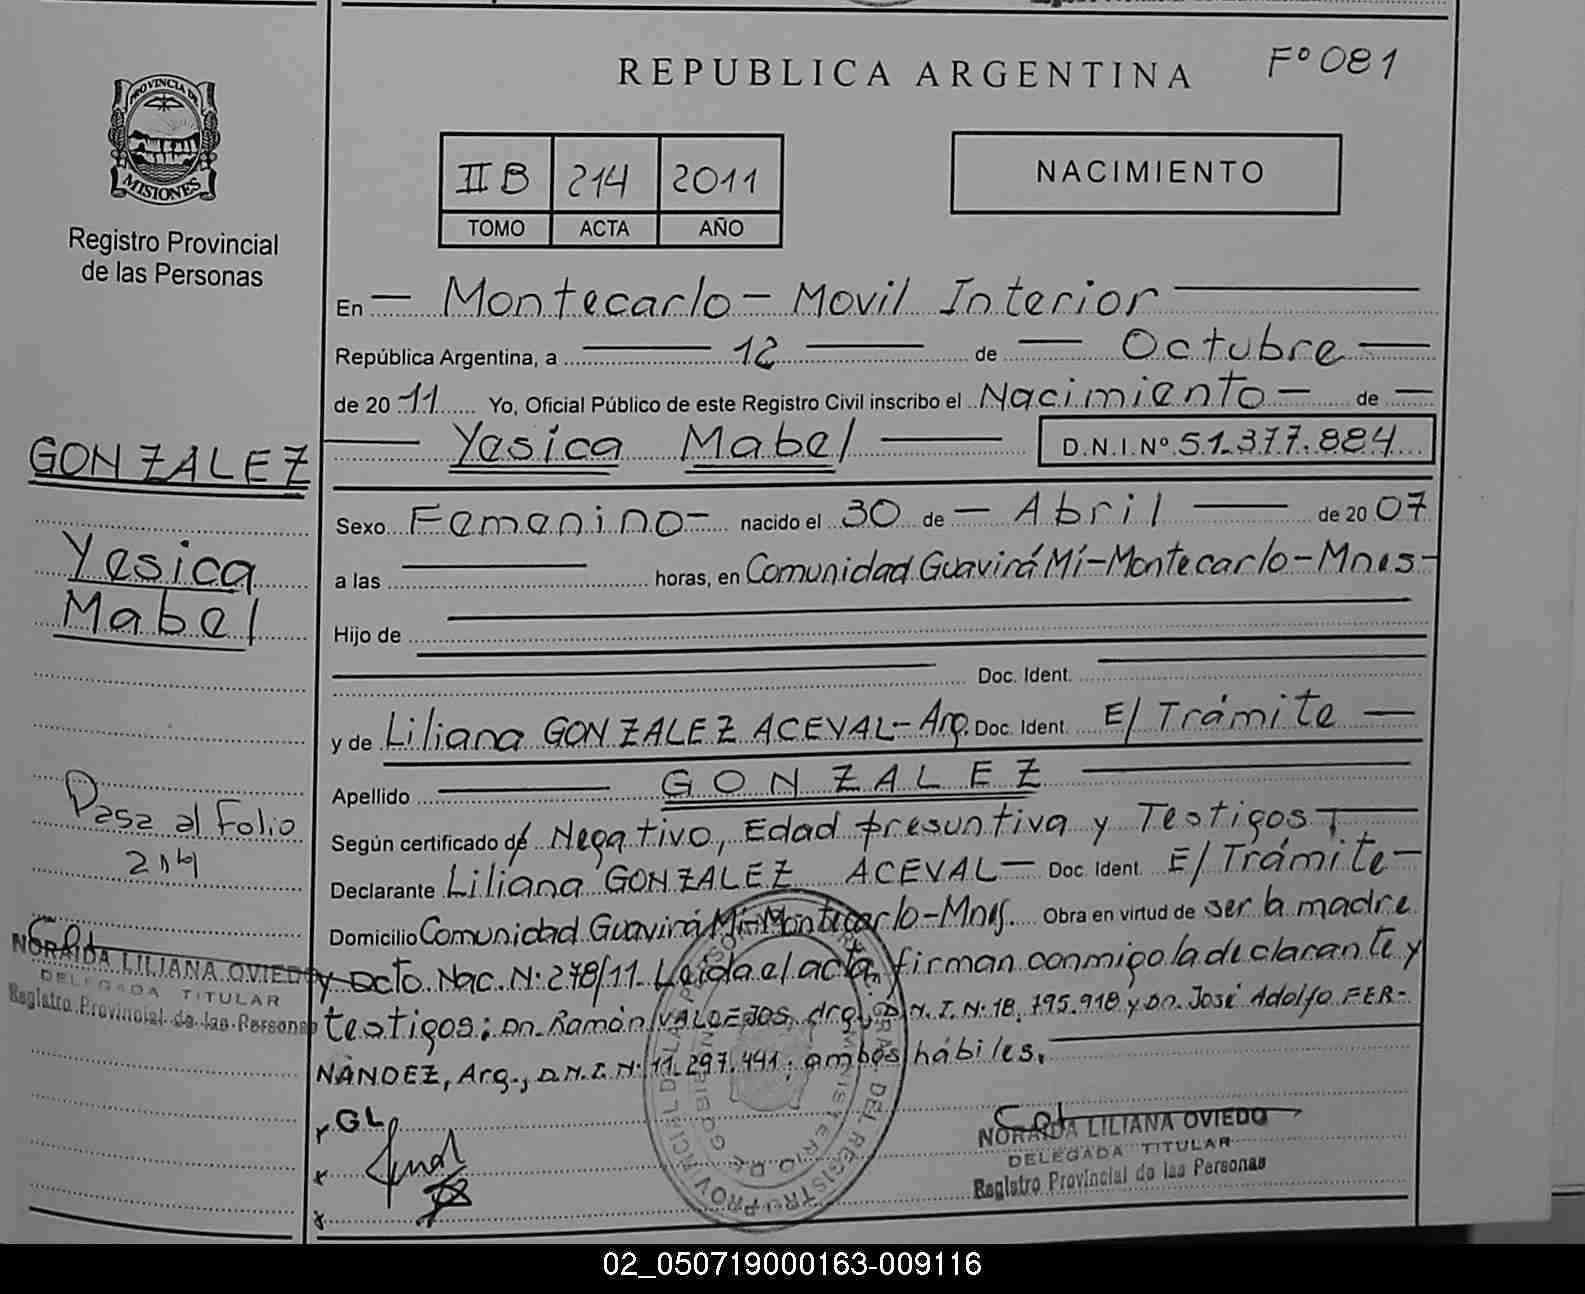 REPUBLICA ARGENTINA
Fº 081
PROVINCIA DE
MISIONES
Registro Provincial
de las Personas
II B 214 2011
TOMO ACTA AÑO
NACIMIENTO
En — Montecarlo - Movil Interior —
República Argentina, a — 12 — de — Octubre —
de 20 11 Yo, Oficial Público de este Registro Civil inscribo el Nacimiento — de —
— Yesica Mabel — D.N.I.Nº 51.377.884
GONZALEZ
Yesica
Mabel
Sexo Femenino - nacido el 30 de — Abril — de 20 07
a las — horas, en Comunidad Guavirá Mí - Montecarlo - Mnes -
Hijo de —
— Doc. Ident. —
y de Liliana GONZALEZ ACEVAL - Arg. Doc. Ident. E/ Trámite —
Apellido — GONZALEZ —
Según certificado de Negativo, Edad presuntiva y Testigos —
Declarante Liliana GONZALEZ ACEVAL — Doc. Ident. E/ Trámite -
Domicilio Comunidad Guavirá Mí - Montecarlo - Mnes. Obra en virtud de ser la madre
y Dcto. Nac. N: 278/11. Leída el acta, firman conmigo la declarante y
testigos: Dn. Ramón VALDEJOS, Arg., D.N.I. N: 18.795.918 y Dn. José Adolfo FER-
NANDEZ, Arg., D.N.I. N: 11.297.441; ambos hábiles. —
Pasa al Folio
214
NORAIDA LILIANA OVIEDO
DELEGADA TITULAR
Registro Provincial de las Personas
x GL
x
x
NORAIDA LILIANA OVIEDO
DELEGADA TITULAR
Registro Provincial de las Personas
02_050719000163-009116